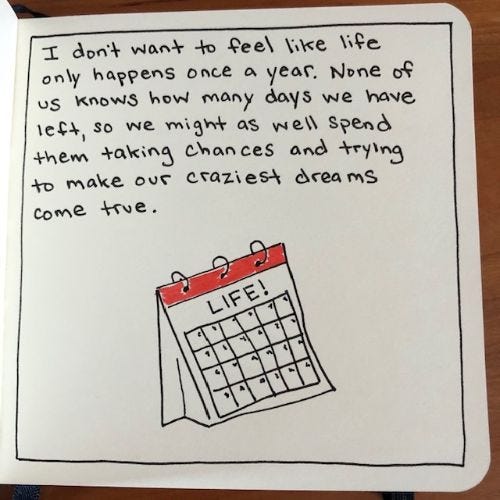 I don't want to feel like life
only happens once a year. None of
us knows how many days we have
left, so we might as well spend
them taking chances and trying
to make our craziest dreams
come true.
LIFE!